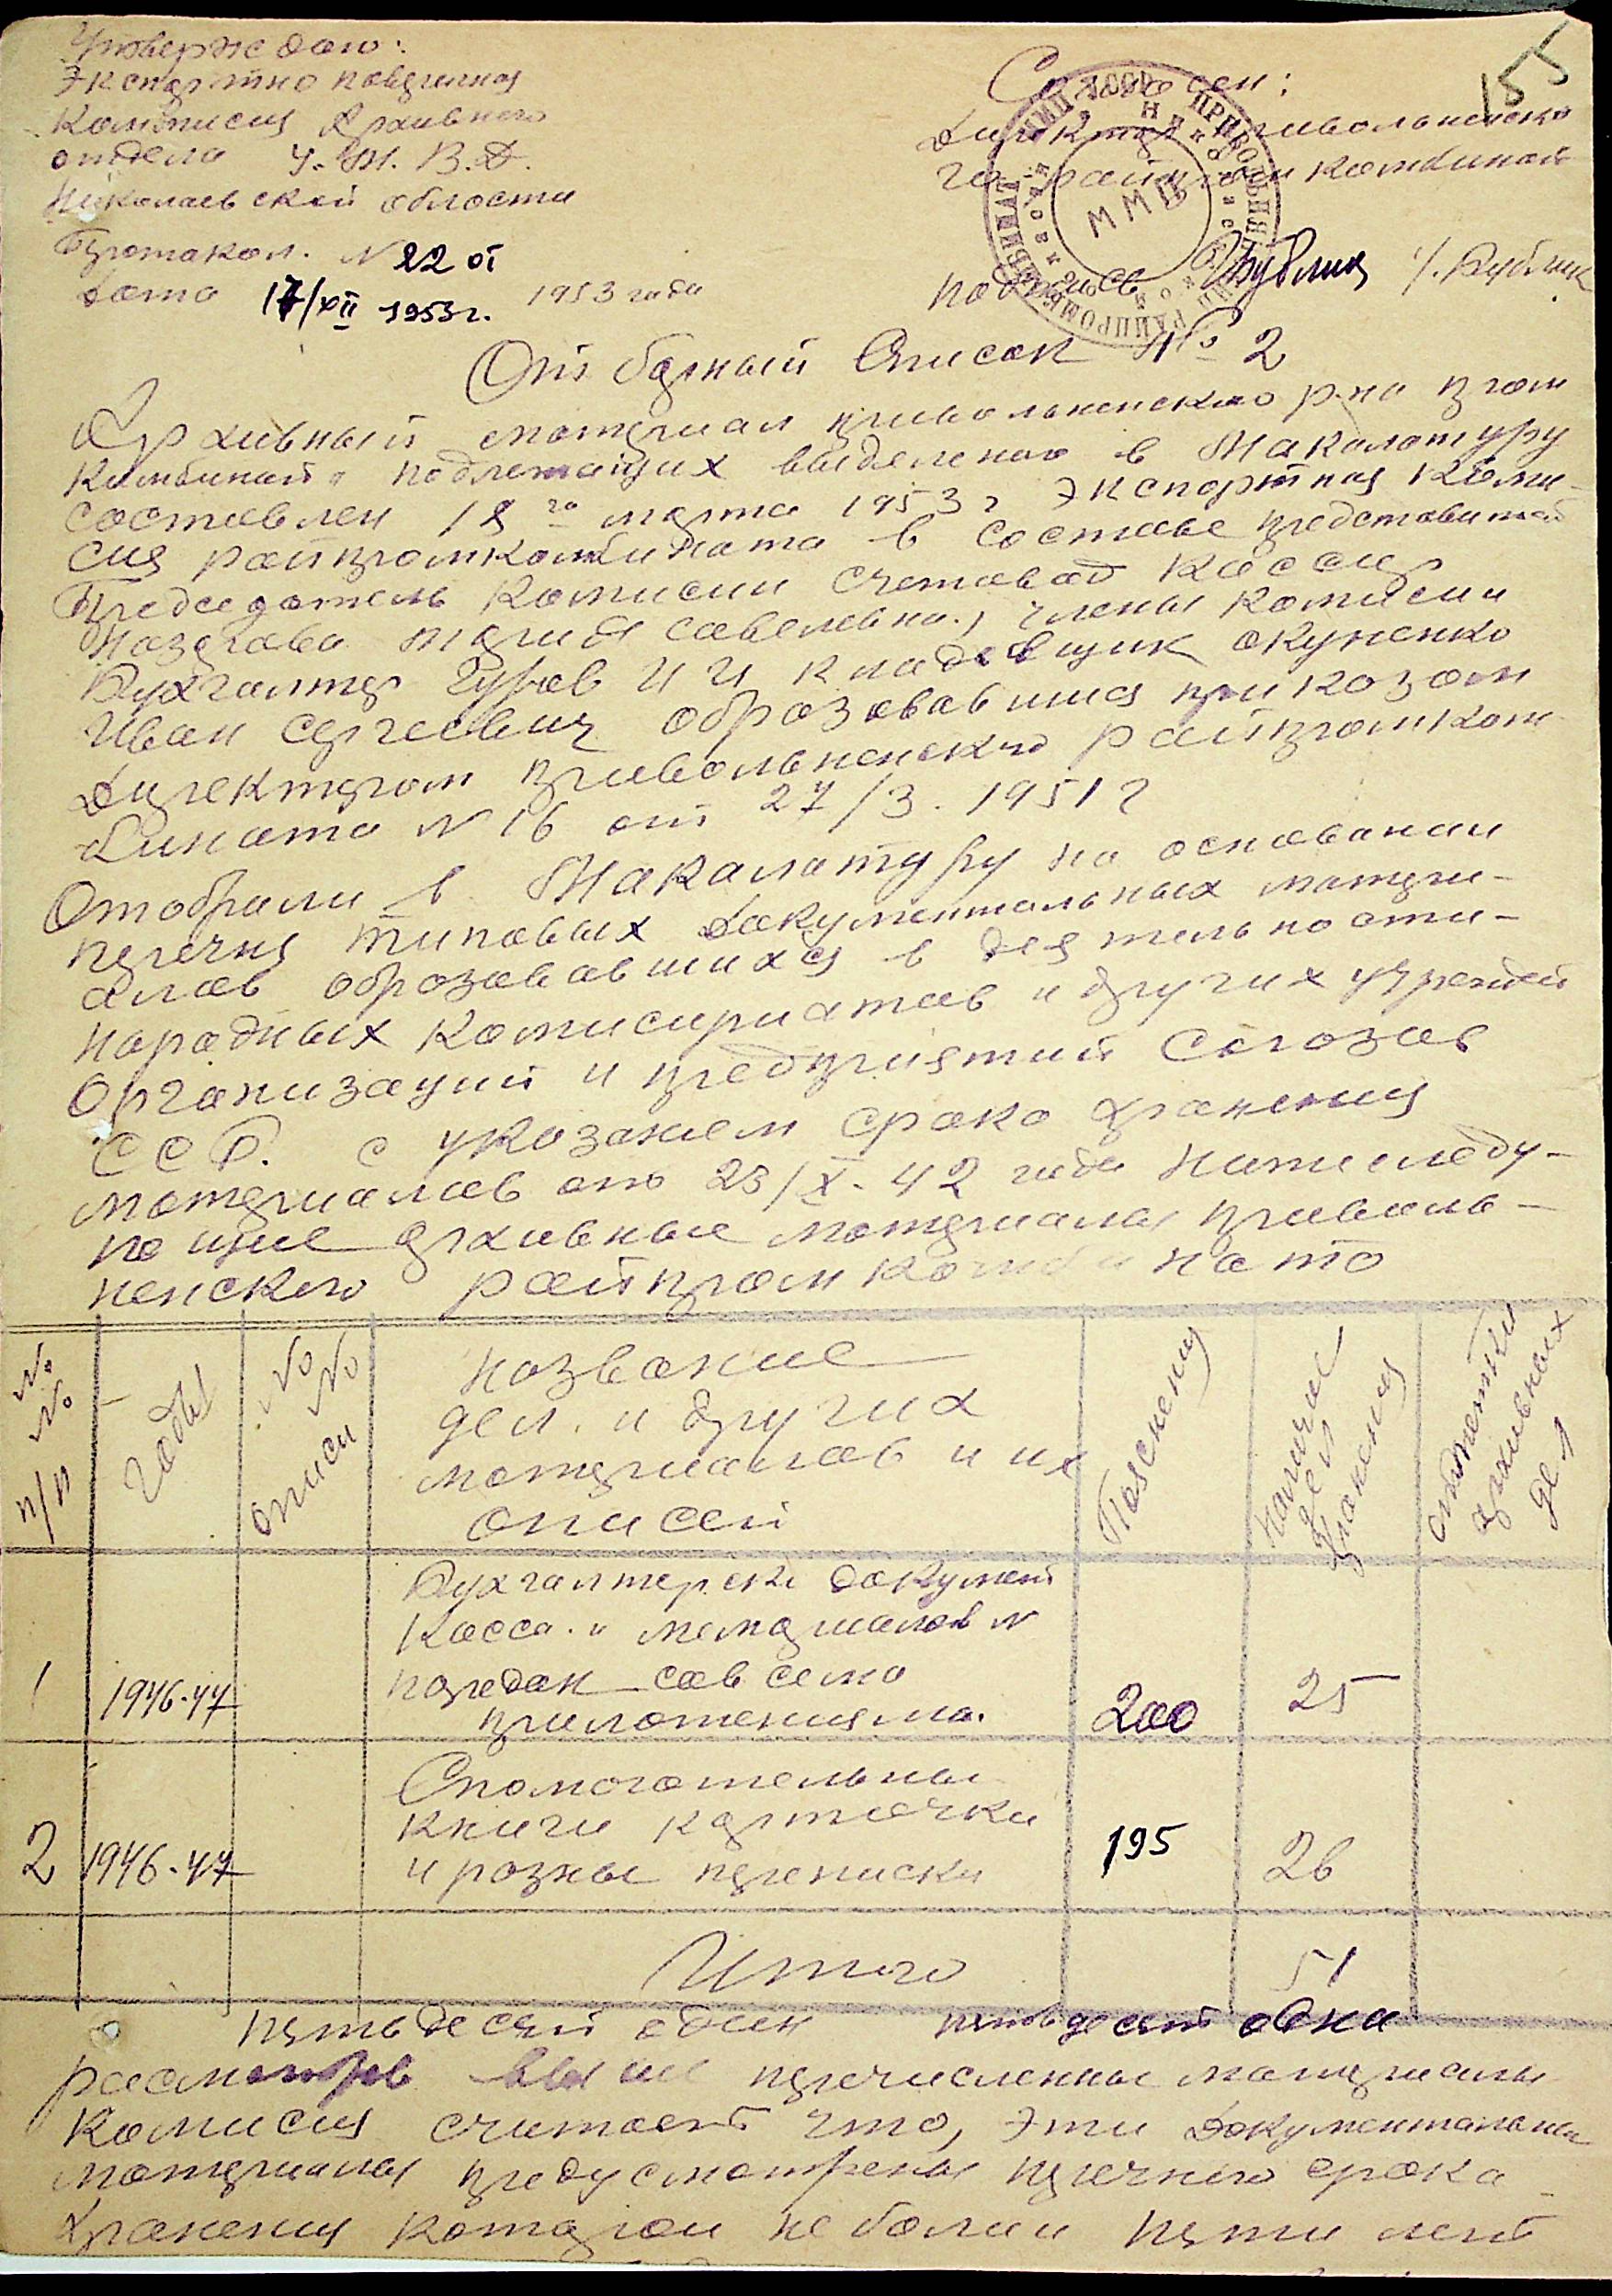 155
Утверждаю:
Экспертно поверочная
Комписия Архивного
отдела У.М.В.Д.
Николаевской области
Протокол. N 22 от
Дата 17/XII 1953 г. 1953 года
Согласен:
Директор Привольненско
го райпром комбинат
подпись Бублик
Отборный Список № 2
Архивный материал привольненского р-на пром
комбинат. подлежащих выделению в Макалатуру
составлен 18 го марта 1953 г Экспортная Коми-
сия райпромкомбината в составе представител
Председатель Комисии счетовод Кассир
Савелевна., члены комисии
Бухгалтер Гуров И И кладовщик Окуненко
Иван Сергеевич образовавшися приказом
Директором привольненского райпромком-
бината N 16 от 27/3. 1951 г
Отобрали в Макалатуру на основании
перечня типовых документальных матери-
алов образовавшихся в деятельности-
народных комисириатов и других учрежден
Организаций и предприятий Союзов
ССР. с указанием срока хранения
материалов от 23/X-42 года нашследу-
ющие архивные материалы приволь-
ненского райпромкомбината
№ № п/п
Годы
№ № описи
название
дел. и других
материалов и их
описей
Пояснения
Наличие дел хранения
отметки архивных дел
Бухгалтерски документ
Касса. и мемориалов N
1 1946-47 поредок совсемо 25
приложениямо. 200
Спомогательны
книги карточки 195
2 1946-47 и розные переписки 26
Итого 51
пятьдесят один пятьдесят один
расмотрев выше перечисленные материалы
комисия считает что, эти документальные
материалы предусмотрены перечнего срока
хранения которои не болии пяти лет